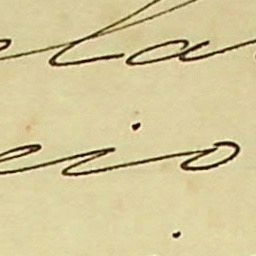 ela
eio